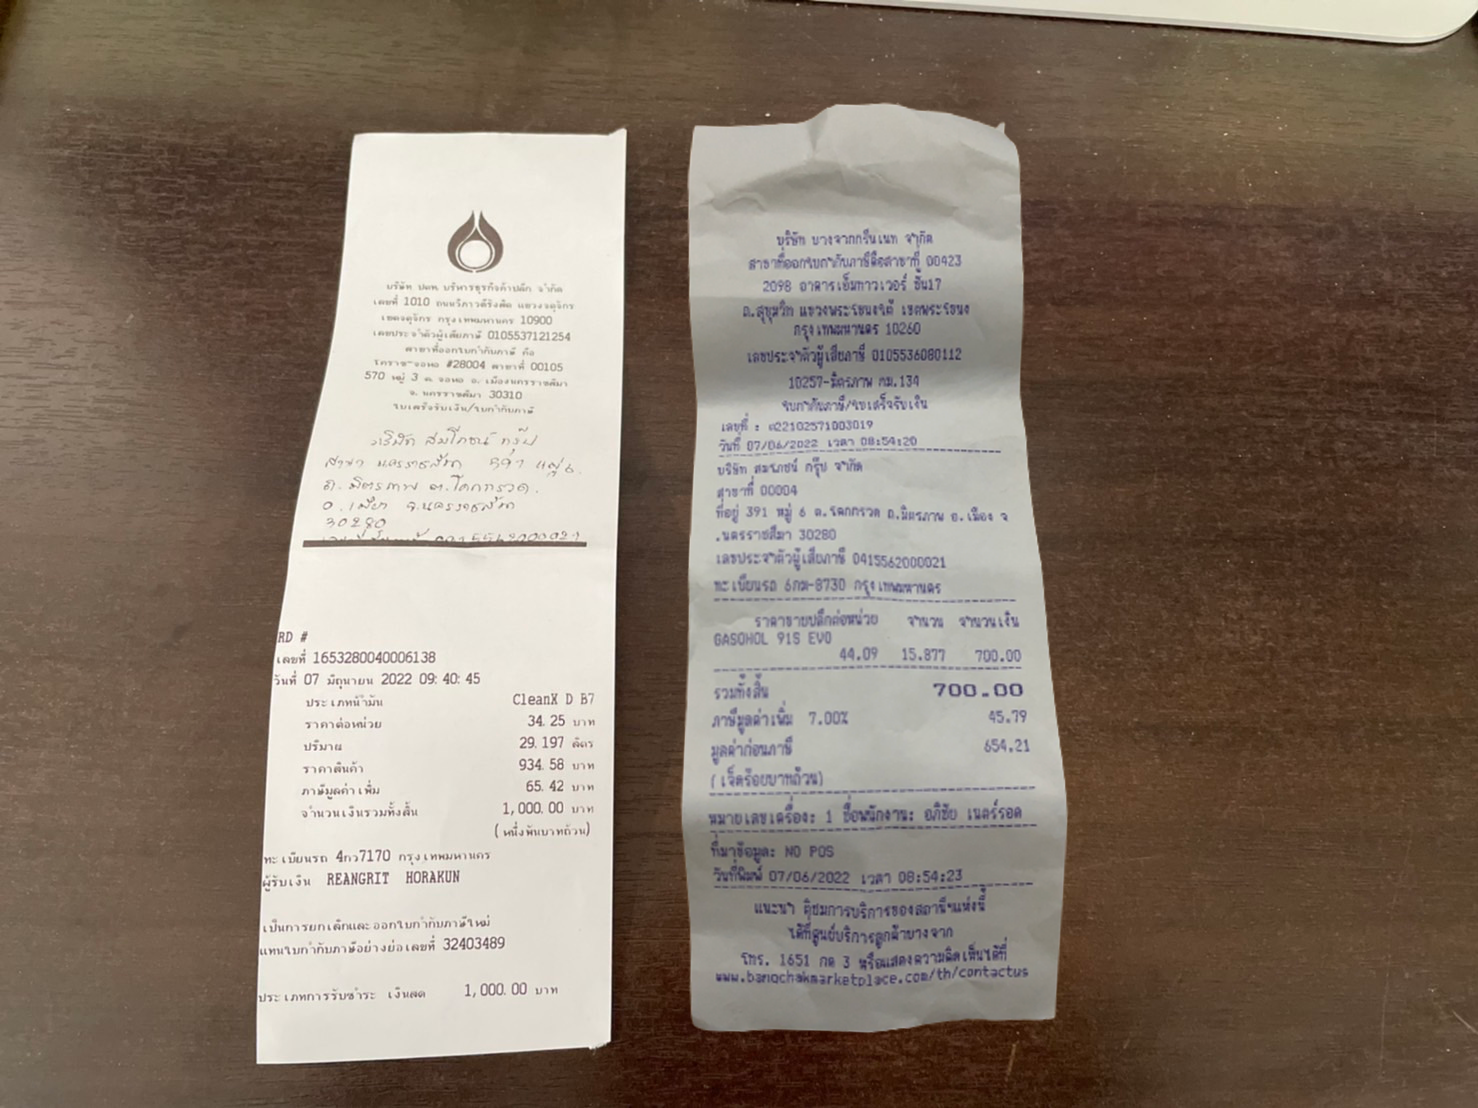 บริษัท ปตท. บริหารธุรกิจค้าปลีก จำกัด
เลขที่ 1010 ถนนวิภาวดีรังสิต แขวงจตุจักร
เขตจตุจักร กรุงเทพมหานคร 10900
เลขประจำตัวผู้เสียภาษี 0105537121254
สาขาที่ออกใบกำกับภาษี คือ
โคราช-จอหอ #28004 สาขาที่ 00105
570 หมู่ 3 ต. จอหอ อ. เมืองนครราชสีมา
จ. นครราชสีมา 30310
ใบเสร็จรับเงิน/ใบกำกับภาษี
บริษัท สมโภชน์ กรุ๊ป
สาขา นครราชสีมา หมู่ 6
ถ. มิตรภาพ ต. โคกกรวด
อ. เมือง จ. นครราชสีมา
30280
RD #
เลขที่ 1653280040006138
วันที่ 07 มิถุนายน 2022 09:40:45
ประเภทน้ำมัน CleanX D B7
ราคาต่อหน่วย 34.25 บาท
ปริมาณ 29.197 ลิตร
ราคาสินค้า 934.58 บาท
ภาษีมูลค่าเพิ่ม 65.42 บาท
จำนวนเงินรวมทั้งสิ้น 1,000.00 บาท
(หนึ่งพันบาทถ้วน)
ทะเบียนรถ 4กว7170 กรุงเทพมหานคร
ผู้รับเงิน REANGRIT HORAKUN
เป็นการยกเลิกและออกใบกำกับภาษีใหม่
แทนใบกำกับภาษีอย่างย่อเลขที่ 32403489
ประเภทการรับชำระ เงินสด 1,000.00 บาท
บริษัท บางจากกรีนเนท จำกัด
สาขาที่ออกใบกำกับภาษีคือสาขาที่ 00423
2098 อาคารเอ็มทาวเวอร์ ชั้น17
ถ.สุขุมวิท แขวงพระโขนงใต้ เขตพระโขนง
กรุงเทพมหานคร 10260
เลขประจำตัวผู้เสียภาษี 0105536080112
10257-มิตรภาพ กม.134
ใบกำกับภาษี/ใบเสร็จรับเงิน
เลขที่ : 022102571003019
วันที่ 07/06/2022 เวลา 08:54:20
บริษัท สมโภชน์ กรุ๊ป จำกัด
สาขาที่ 00004
ที่อยู่ 391 หมู่ 6 ต.โคกกรวด ถ.มิตรภาพ อ.เมือง จ
.นครราชสีมา 30280
เลขประจำตัวผู้เสียภาษี 0415562000021
ทะเบียนรถ 6กท-8730 กรุงเทพมหานคร
ราคาขายปลีกต่อหน่วย จำนวน จำนวนเงิน
GASOHOL 91S EVO
44.09 15.877 700.00
รวมทั้งสิ้น 700.00
ภาษีมูลค่าเพิ่ม 7.00% 45.79
มูลค่าก่อนภาษี 654.21
(เจ็ดร้อยบาทถ้วน)
หมายเลขเครื่อง: 1 ชื่อพนักงาน: อภิชัย เนตร์รอด
ที่มาข้อมูล: NO POS
วันที่พิมพ์ 07/06/2022 เวลา 08:54:23
แนะนำ ติชมการบริการของสถานีฯแห่งนี้
ได้ที่ศูนย์บริการลูกค้าบางจาก
โทร. 1651 กด 3 หรือแสดงความคิดเห็นได้ที่
www.bangchakmarketplace.com/th/contactus